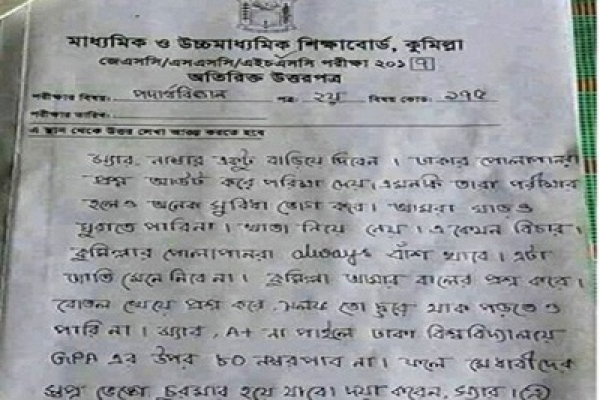 মাধ্যমিক ও উচ্চমাধ্যমিক শিক্ষাবোর্ড, কুমিল্লা
জেএসসি/এসএসসি/এইচএসসি পরীক্ষা ২০১৭
অতিরিক্ত উত্তরপত্র
পরীক্ষার বিষয়: পদার্থবিজ্ঞান পত্র: ২য় বিষয় কোড: ১৭৫
পরীক্ষার তারিখ:
এ স্থান থেকে উত্তর লেখা আরম্ভ করতে হবে
স্যার, নাম্বার একটু বাড়িয়ে দিবেন। ঢাকার পোলাপানরা
প্রশ্ন আউট করে পরিক্ষা দেয়। এমনকি তারা পরীক্ষার
হলেও অনেক সুবিধা ভোগ করে। আমরা ঘাড়ও
ঘুরাতে পারিনা। খাতা নিয়ে নেয়। এ কেমন বিচার।
কুমিল্লার পোলাপানরা always বাঁশ খাবে। এটা
জাতি মেনে নিবে না। কুমিল্লা আমার বালের প্রশ্ন করে।
বোতল খেয়ে প্রশ্ন করে, তো দূরে থাক পড়তেও
পারি না। স্যার, A+ না পাইলে ঢাকা বিশ্ববিদ্যালয়ে
GPA এর উপর ৮০ নম্বর পাব না। ফলে মেধাবীদের
স্বপ্ন ভেঙ্গে চুরমার হয়ে যাবে। দয়া করেন, স্যার।